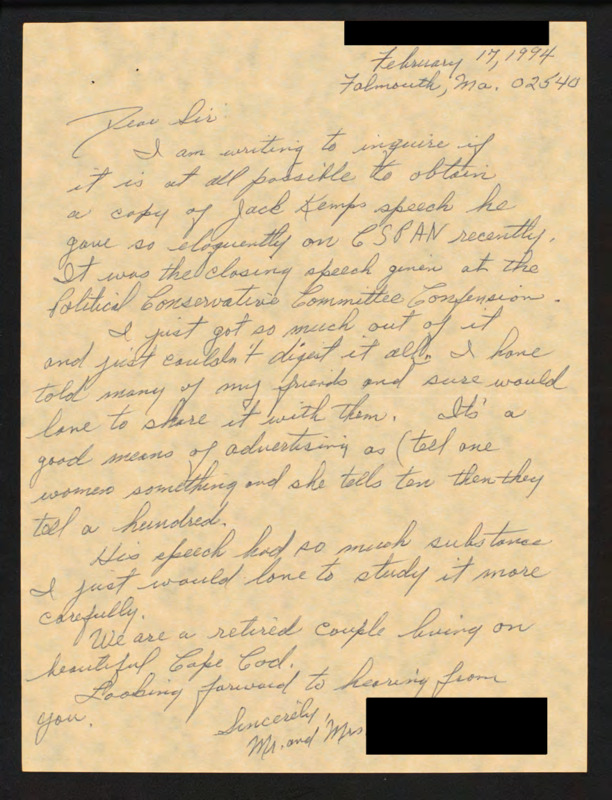 February 17, 1994
Falmouth, Ma. 02540
Dear Sir:
I am writing to inquire if
it is at all possible to obtain
a copy of Jack Kemps speech he
gave so eloquently on CSPAN recently.
It was the closing speech given at the
Political Conservative Committee Confension.
I just got so much out of it
and just couldn't digest it all. I have
told many of my friends and sure would
love to share it with them. It's a
good means of advertising as (tell one
women something and she tells ten then they
tell a hundred.
His speech had so much substance
I just would love to study it more
carefully.
We are a retired couple living on
beautiful Cape Cod.
Looking forward to hearing from
you.
Sincerely,
Mr. and Mrs.